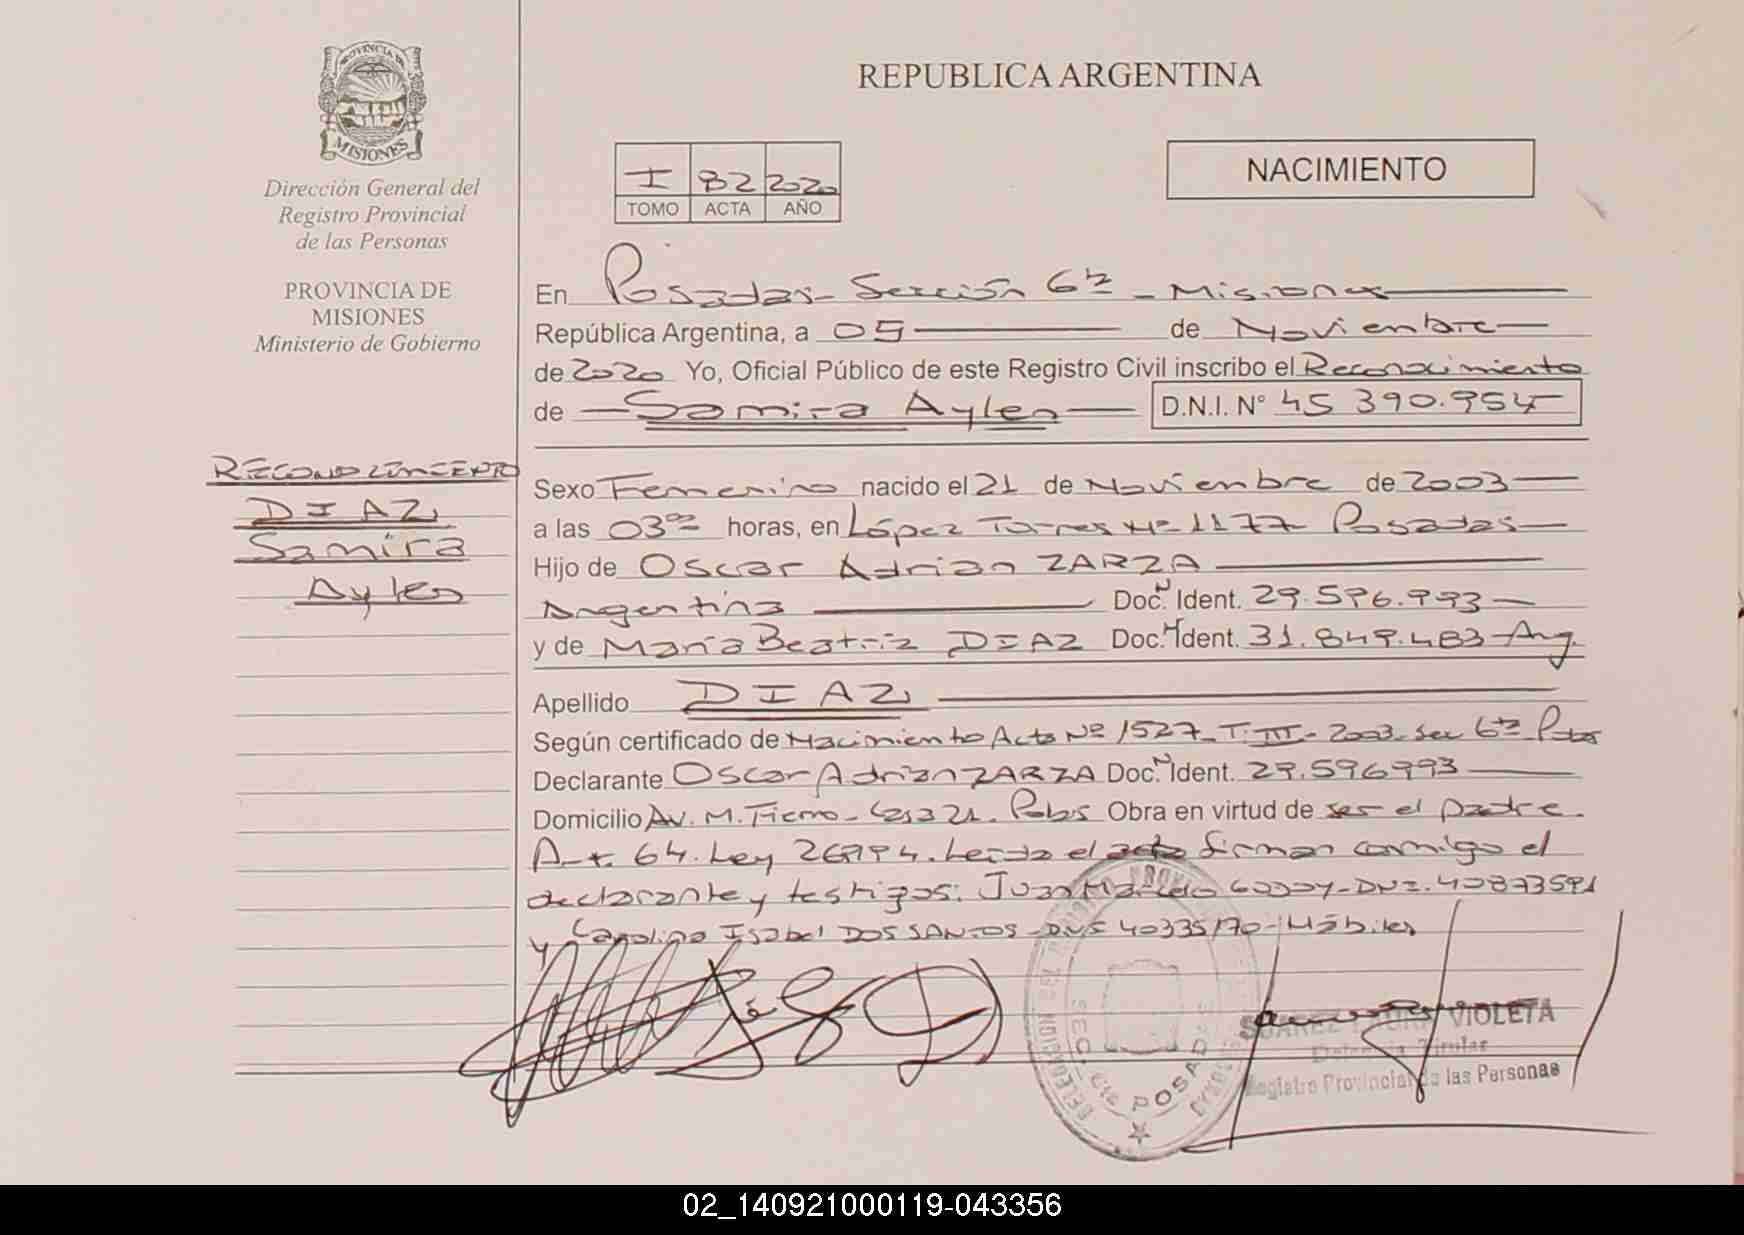 PROVINCIA DE
MISIONES
Dirección General del
Registro Provincial
de las Personas
PROVINCIA DE
MISIONES
Ministerio de Gobierno
RECONOCIMIENTO
DIAZ
Samira
Aylen
REPUBLICA ARGENTINA
I 82 2020
TOMO ACTA AÑO
NACIMIENTO
En Posadas - Sección 6ta - Misiones
República Argentina, a 05 de Noviembre
de 2020 Yo, Oficial Público de este Registro Civil inscribo el Reconocimiento
de Samira Aylen D.N.I. N° 45 390.954
Sexo Femenino nacido el 21 de Noviembre de 2003
a las 03 00 horas, en López Torres Nº 1177 Posadas
Hijo de Oscar Adrian ZARZA
Argentina Doc. N Ident. 29.596.993
y de María Beatriz DIAZ Doc. N Ident. 31.849.483 Arg.
Apellido DIAZ
Según certificado de Nacimiento Acta Nº 1527 T. III - 2003 - Sec 6ta Pdas
Declarante Oscar Adrian ZARZA Doc. N Ident. 29.596993
Domicilio Av. M. Fierro - 21. Pdas Obra en virtud de ser el padre.
Art. 64. Ley 26994. Leída el acta firman conmigo el
declarante y testigos: Juan DNI. 40873591
y Carolina Isabel DOS SANTOS - DNI 40335170 - Hábiles
SUAREZ LAURA VIOLETA
Titular
Registro Provincial de las Personas
DELEGACION DEL REGISTRO PROV
SEC. 6ta
POSADAS
02_140921000119-043356